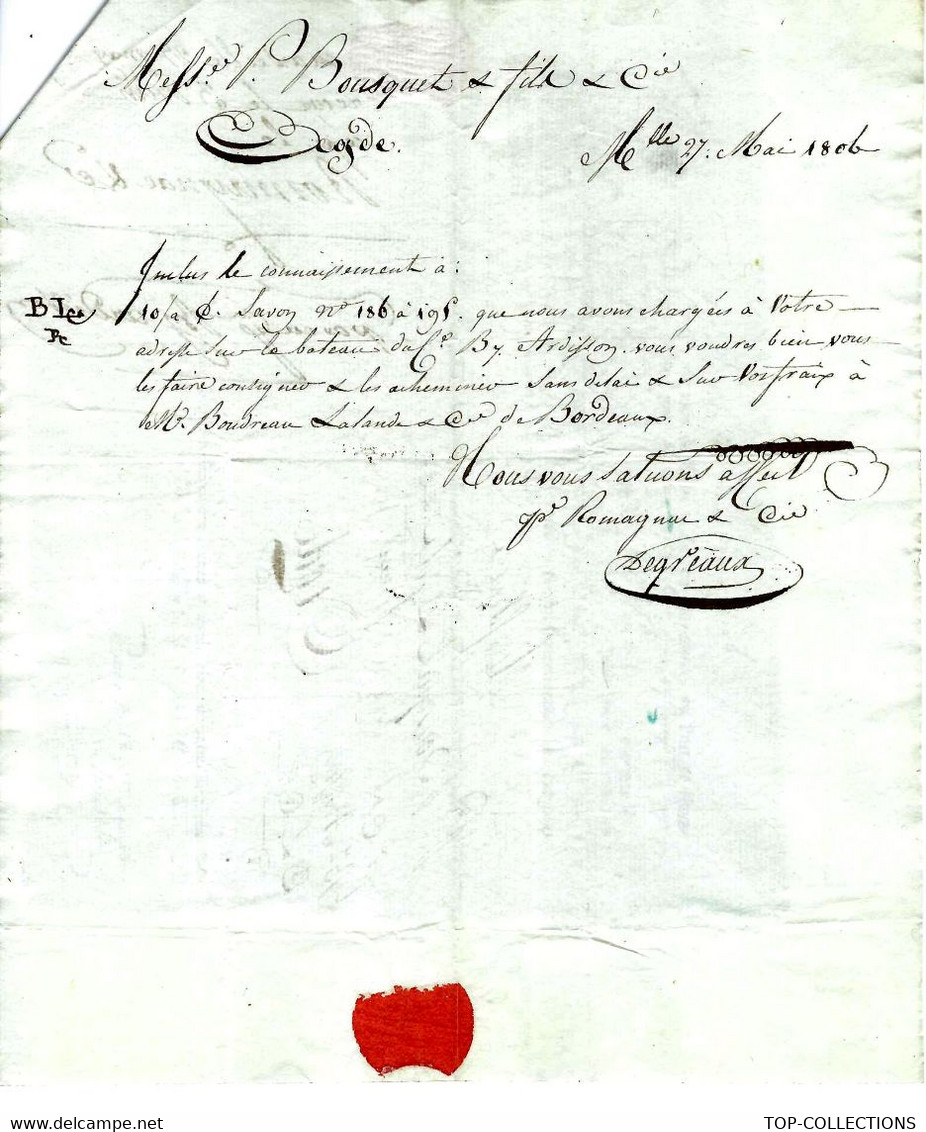 Mess.rs P. Bousquet & fils & Cie
Agde.
Mlle 27. Mai 1806
Inclus le connaissement à:
BLC
Pc
10/a C. Savon no 186 à 195. que nous avons chargées à Votre
adresse sur le bateau du Ce. By. Ardisson. vous voudres bien vous
les faire consigner & les acheminer sans delai & sur Vos fraix à
Mr. Boudreau Lalande & Cie de Bordeaux.
Nous vous saluons affect
Romagnac & Cie
Degréaux
TOP-COLLECTIONS